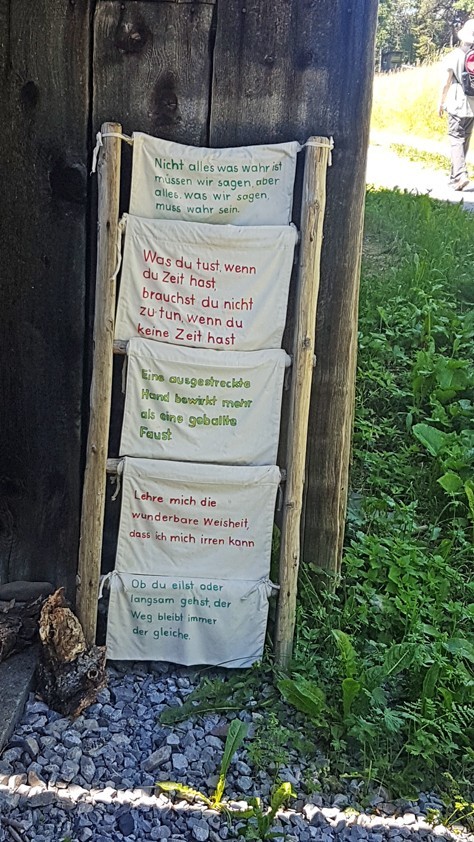 Nicht alles was wahr ist
müssen wir sagen, aber
alles, was wir sagen,
muss wahr sein.
Was du tust, wenn
du Zeit hast,
brauchst du nicht
zu tun, wenn du
keine Zeit hast
Eine ausgestreckte
Hand bewirkt mehr
als eine geballte
Faust
Lehre mich die
wunderbare Weisheit,
dass ich mich irren kann
Ob du eilst oder
langsam gehst, der
Weg bleibt immer
der gleiche.